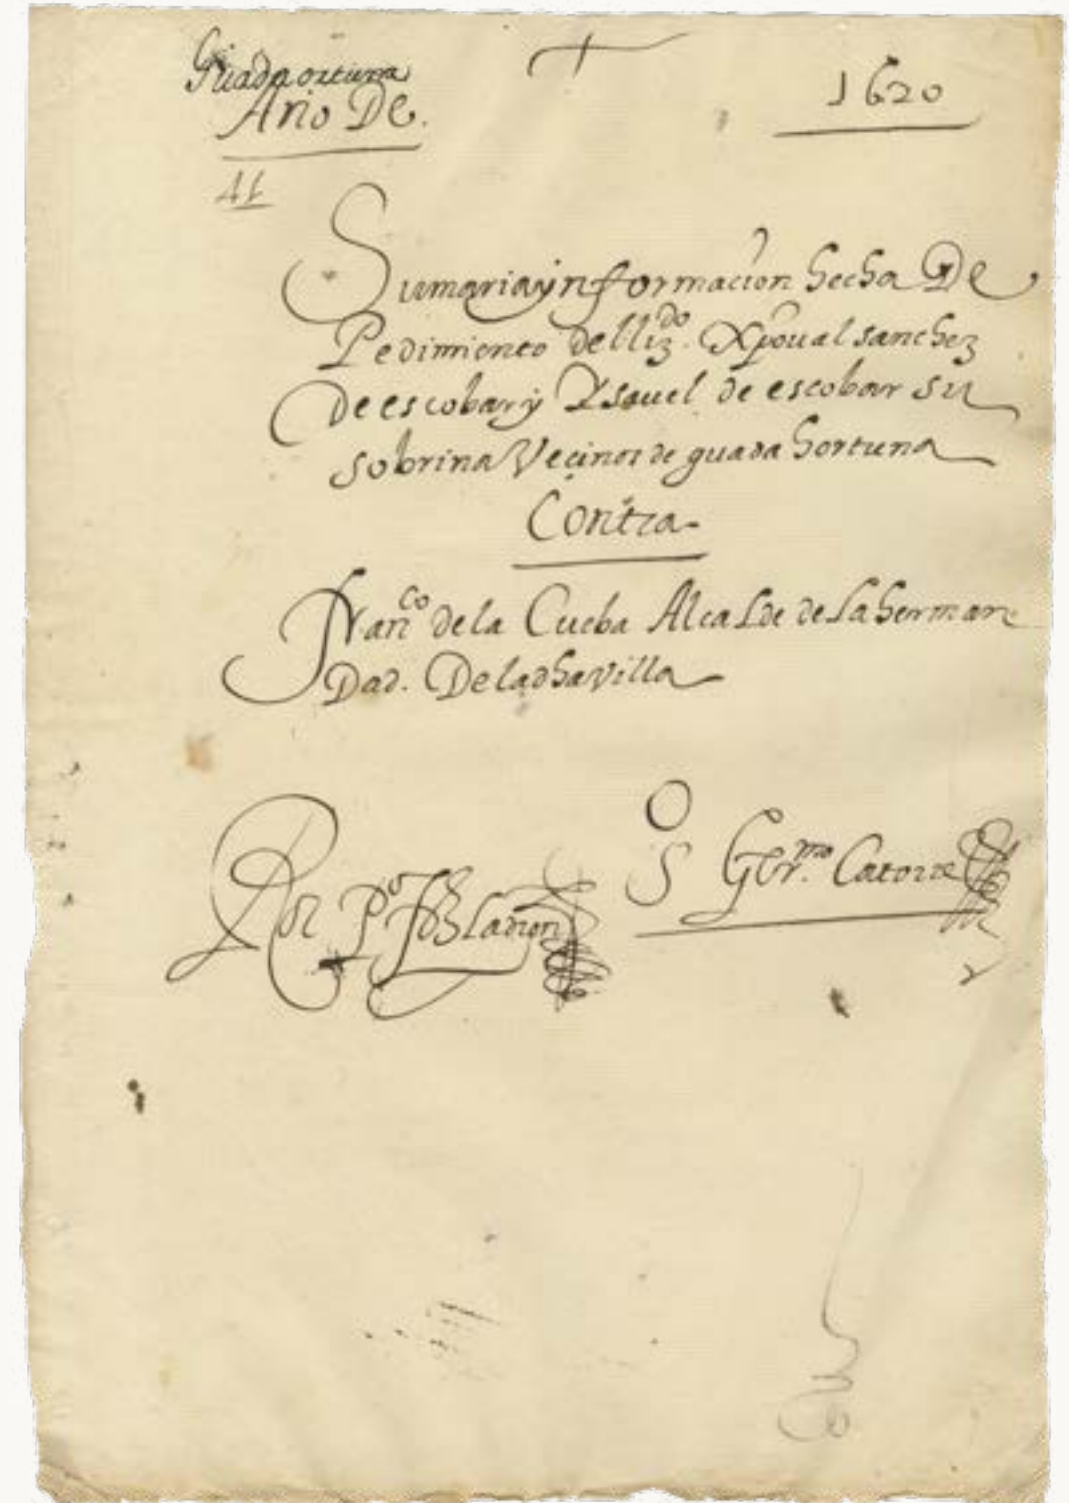 Guadaortuna
Año De. 1620
41
Sumaria ynformaçion hecha De
Pedimiento del lizdo. Xpoual sanchez
de escobar y Ysauel de escobar su
sobrina Veçinos de guada hortuna
Contra
Franco de la Cueba Alcalde de la herman
Dad. De la dha villa
O
S Germo. Catorze
Por Po ladron